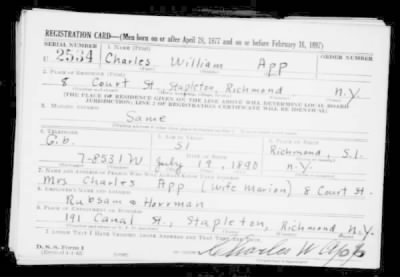 REGISTRATION CARD—(Men born on or after April 28, 1877 and on or before February 16, 1897)
SERIAL NUMBER 1. NAME (Print) ORDER NUMBER
U 2534 Charles William App
2. PLACE OF RESIDENCE (Print)
8 Court St. Stapleton, Richmond N.Y.
(THE PLACE OF RESIDENCE GIVEN ON THE LINE ABOVE WILL DETERMINE LOCAL BOARD
JURISDICTION; LINE 2 OF REGISTRATION CERTIFICATE WILL BE IDENTICAL)
3. MAILING ADDRESS
Same
4. TELEPHONE
Gib. 51 Richmond, S.I.
7-8531W July 19, 1890 N.Y.
7. NAME AND ADDRESS OF PERSON WHO WILL ALWAYS KNOW YOUR ADDRESS
Mrs. Charles App (Wife Marion) 8 Court St.
8. EMPLOYER'S NAME AND ADDRESS
Rubsam & Horrman
191 Canal St., Stapleton, Richmond, N.Y.
I AFFIRM THAT I HAVE VERIFIED ABOVE ANSWERS AND THAT THEY ARE TRUE.
D. S. S. Form 1
Charles W App